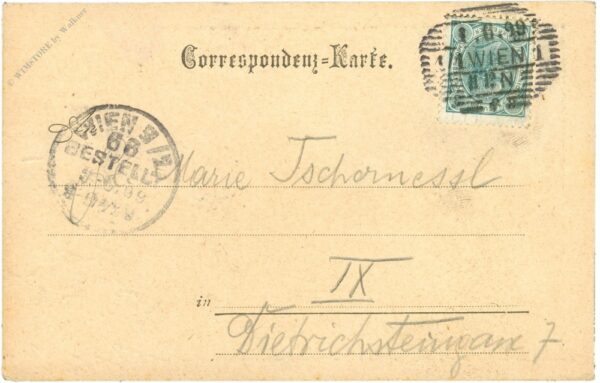 © WIMSTORE by Walkner
Correspondenz=Karte.
WIEN
WIEN 9/2
66
BESTELLT
Marie Tschernessl
IX
in
Dietrichsteingasse 7